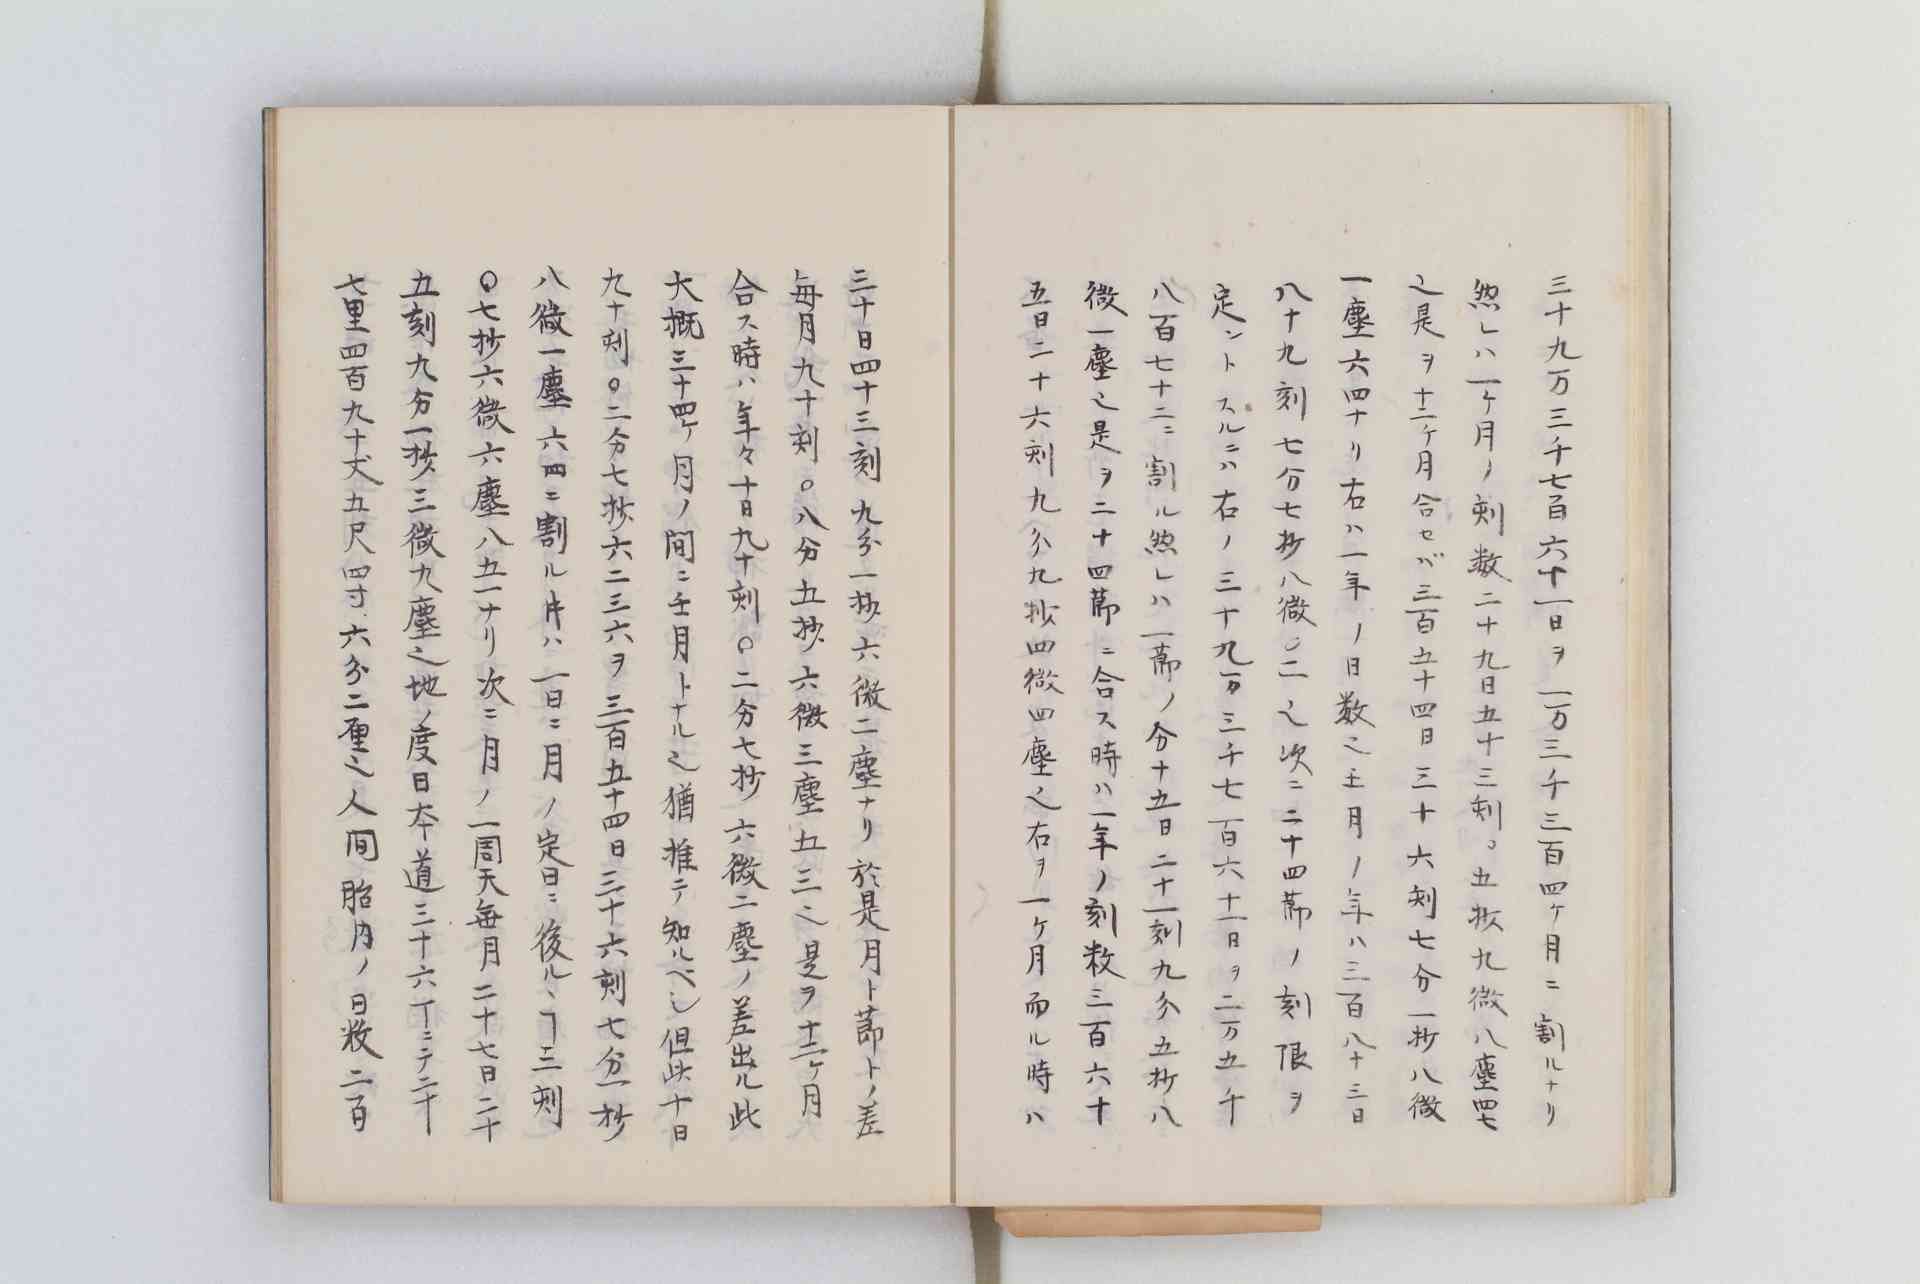 三十九万三千七百六十一日ヲ一万三千三百四ケ月ニ割ルナリ
然レハ一ケ月ノ刻数二十九日五十三刻〇五抄九微八塵四七
之是ヲ十二ケ月合セバ三百五十四日三十六刻七分一抄八微
一塵六四ナリ右ハ一年ノ日数之壬月ノ年ハ三百八十三日
八十九刻七分七抄八微〇二之次ニ二十四節ノ刻限ヲ
定ントスルニハ右ノ三十九万三千七百六十一日ヲ二万五千
八百七十二ニ割ル然レハ一節ノ分十五日二十一刻九分五抄八
微一塵之是ヲ二十四節ニ合ス時ハ一年ノ刻数三百六十
五日二十六刻九分九抄四微四塵之右ヲ一ケ月而ル時ハ
三十日四十三刻九分一抄六微二塵ナリ於是月ト節トノ差
毎月九十刻〇八分五抄六微三塵五三之是ヲ十二ケ月
合ス時ハ年々十日九十刻〇二分七抄六微二塵ノ差出ル此
大概三十四ケ月ノ間ニ壬月トナル之猶推テ知ルベシ但此十日
九十刻〇二分七抄六二三六ヲ三百五十四日三十六刻七分一抄
八微一塵六四ニ割ル時ハ一日ニ月ノ定日ニ後ルヽヿ三刻
〇七抄六微六塵八五一ナリ次ニ月ノ一周天毎月二十七日二十
五刻九分一抄三微九塵之地ノ度日本道三十六丁ニテ二十
七里四百九十丈五尺四寸六分二厘之人間胎内ノ日数二百